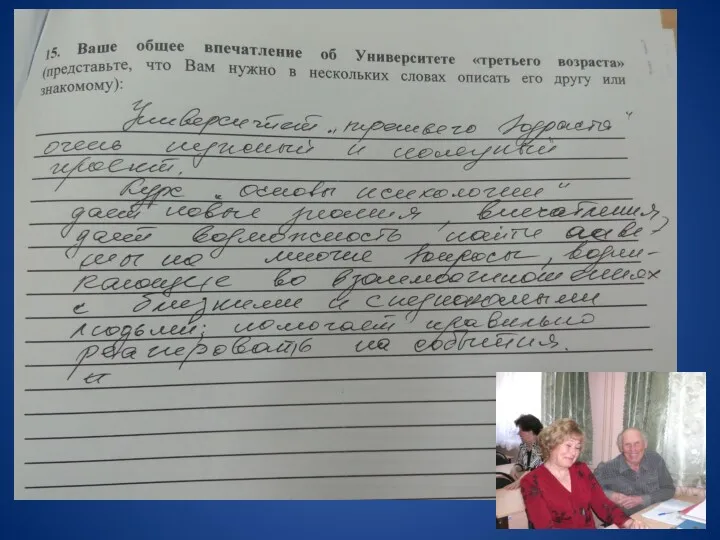 15. Ваше общее впечатление об Университете «третьего возраста»
(представьте, что Вам нужно в нескольких словах описать его другу или
знакомому):
Университет „третьего возраста"
очень нужный и полезный
проект.
Курс „основы психологии"
даёт новые знания, впечатления,
даёт возможность найти отве-
ты на многие вопросы, возни-
кающие во взаимоотношениях
с близкими и
людьми; помогает правильно
реагировать на события.
и